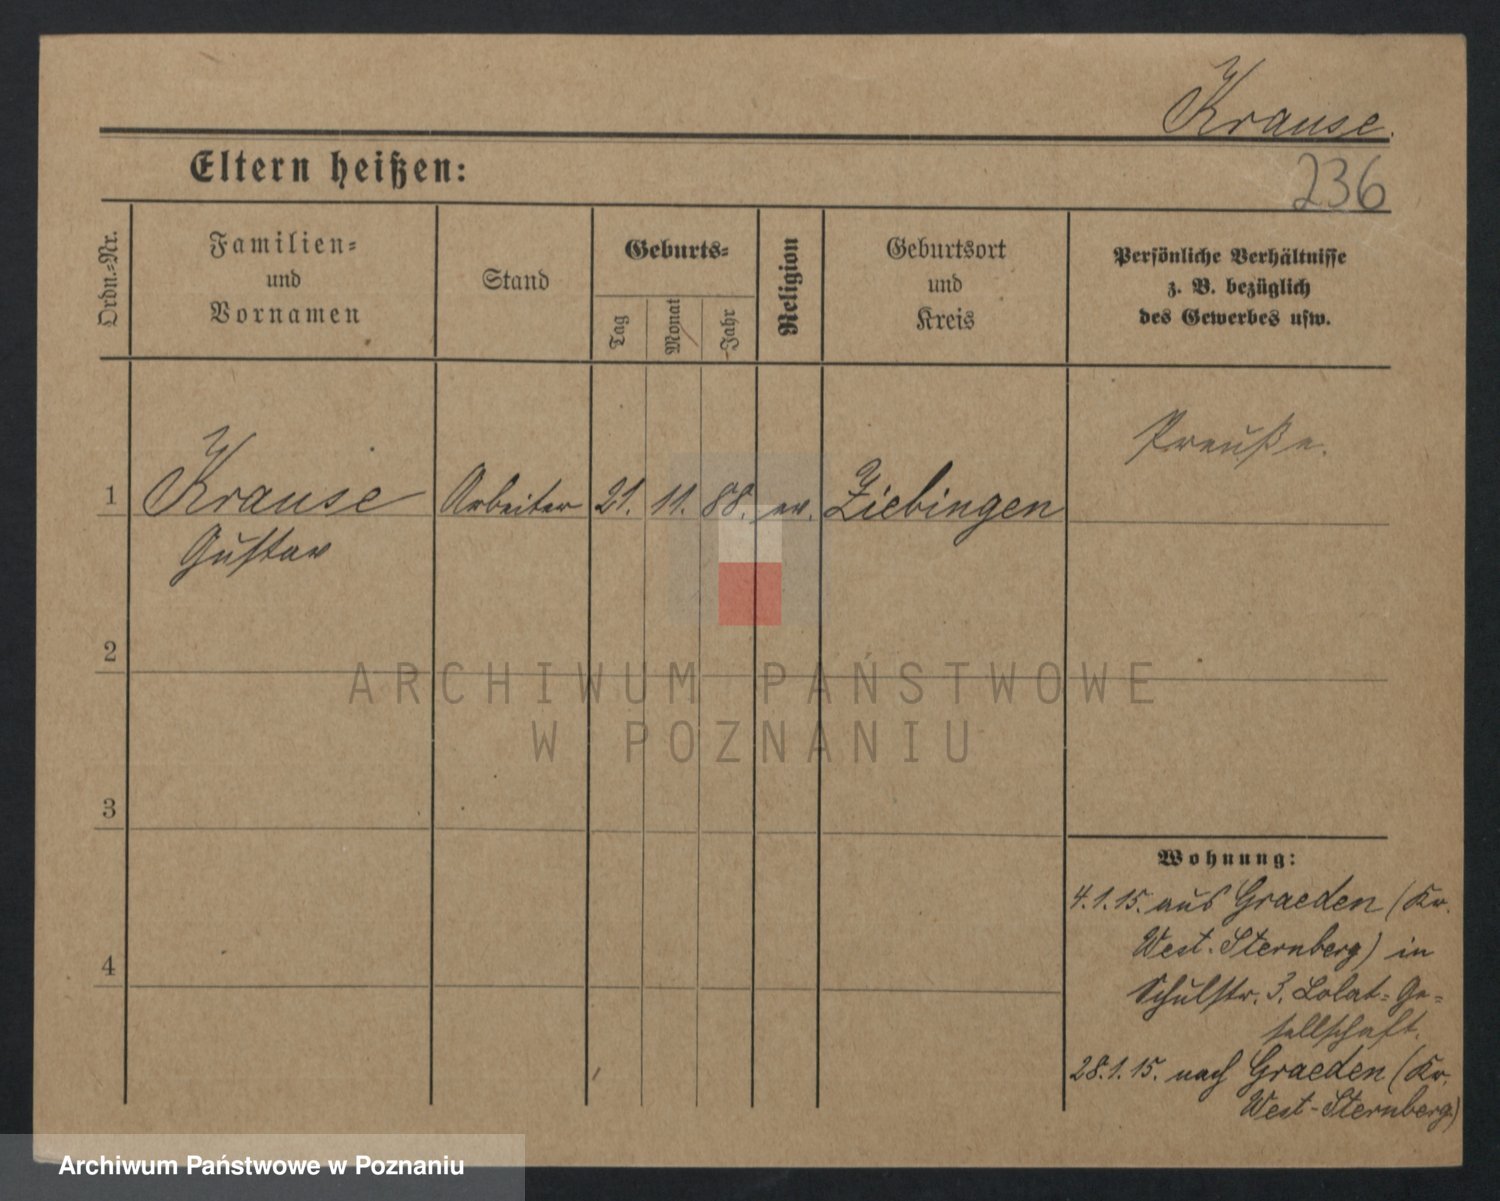 Krause.
Eltern heißen:
236
Ordn.-Nr.
Familien-
und
Vornamen
Stand
Geburts-
Tag
Monat
Jahr
Religion
Geburtsort
und
Kreis
Persönliche Verhältnisse
z. B. bezüglich
des Gewerbes usw.
Preuße.
1 Krause Arbeiter 21. 11. 88. ev. Ziebingen
Gustav
2
ARCHIWUM PAŃSTWOWE
W POZNANIU
3
Wohnung:
4.1.15. aus Graeden (Kr.
West-Sternberg) in
Schulstr. 3. Lolat-Ge-
sellschaft.
4
28.1.15. nach Graeden (Kr.
West-Sternberg)
Archiwum Państwowe w Poznaniu